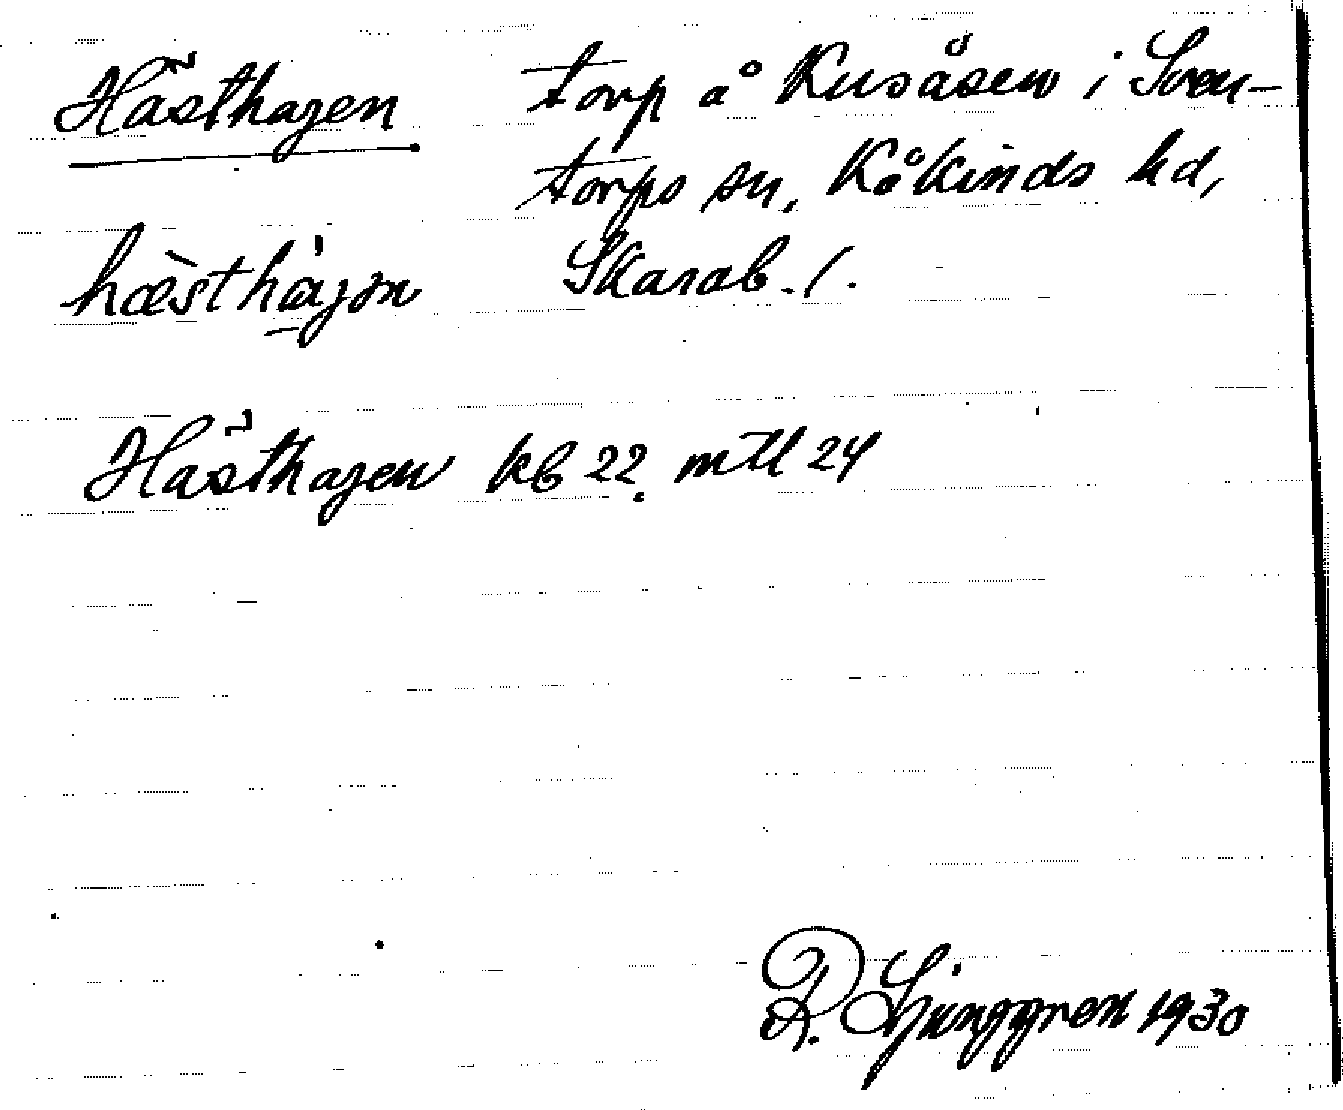 Hästhagen torp å Kusåsen i Sven-
torps sn, Kåkinds hd,
hæ̀sthàgən Skarab. l.
Hästhagen kb 22. mtl 24
R. Ljunggren 1930